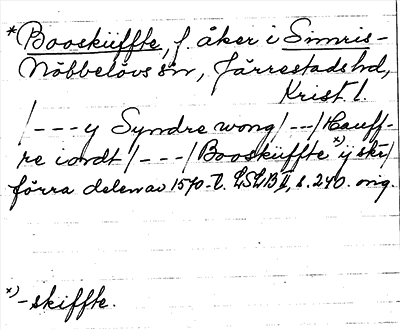 *Booskiffte, f. åker i Simris-
Nöbbelövs sn, Järrestads hd,
Krist. l.
/---y Syndre wong/---/Hauff-
re iordt/---/Booskiffte x) ij skr/
förra delen av 1570-t. LSLB I, s. 240. orig.
x) -skiffte.